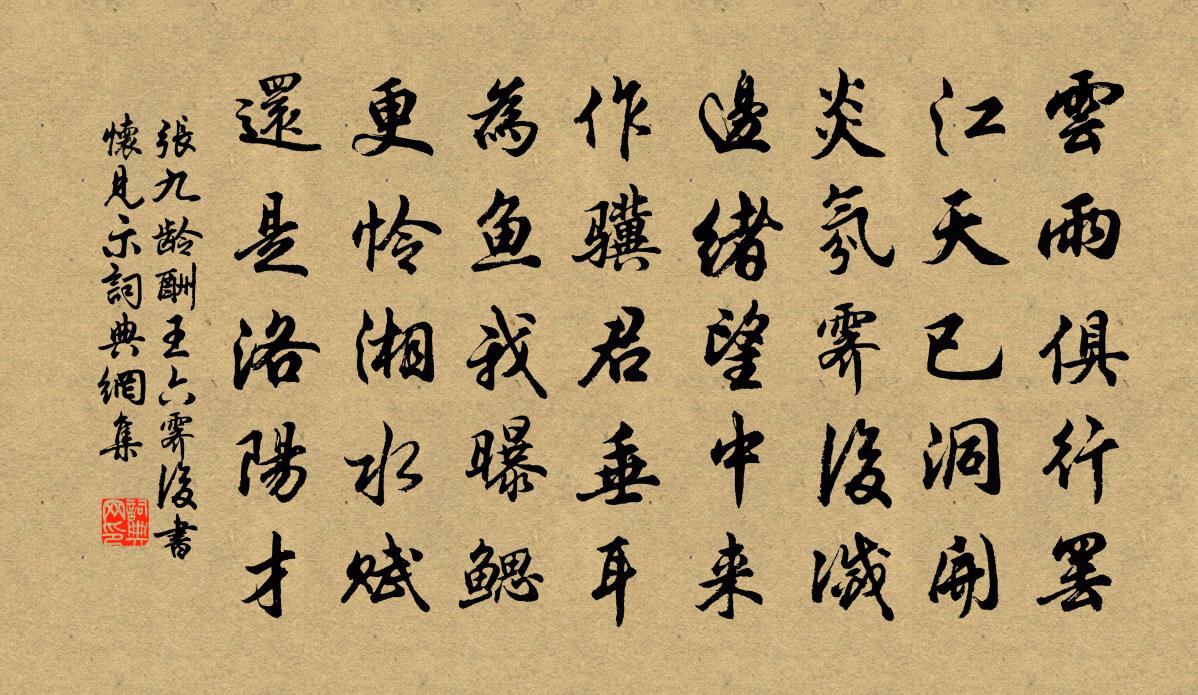 雲雨俱行罷
江天已洞開
炎氛霽後滅
邊緒望中来
作驥君垂耳
為魚我曝鰓
更怜湘水賦
還是洛陽才
張九龄酬王六霽後書
懷見示詞典網集
詞典网印